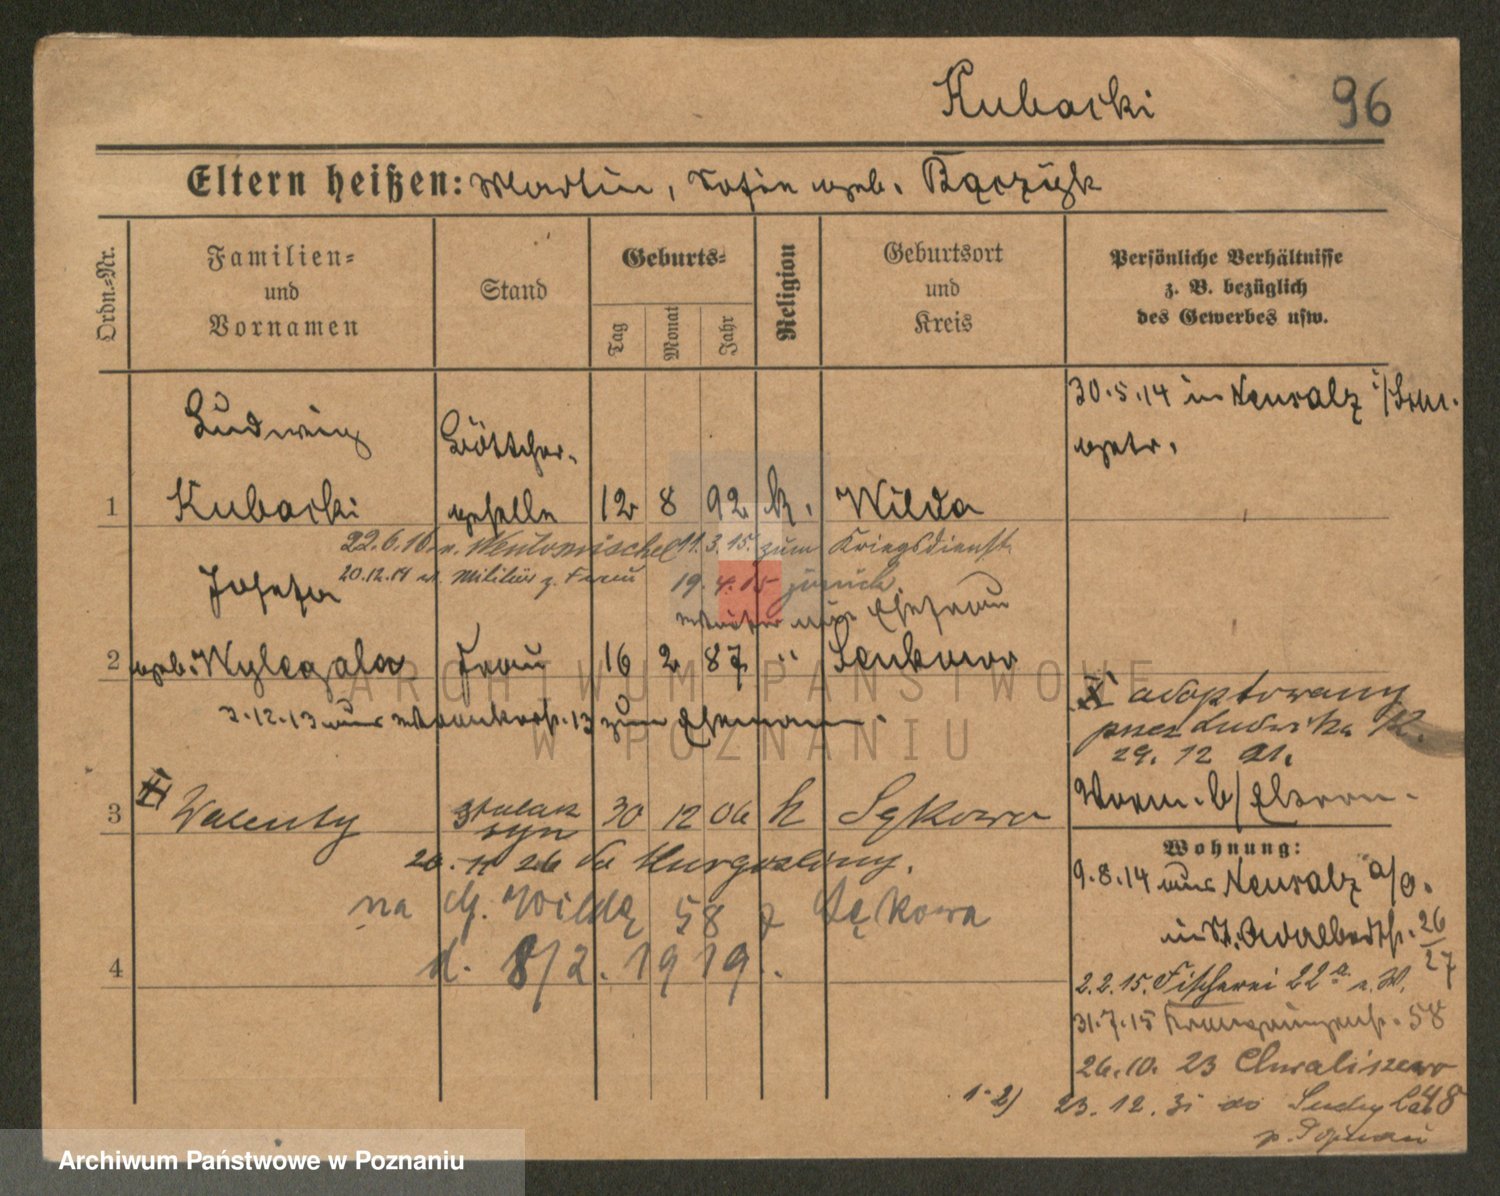 Kubacki 96
Eltern heißen: Martin, Sofie geb. Bączyk
Ordn.=Nr.
Familien=
und
Vornamen
Stand
Geburts=
Tag
Monat
Jahr
Religion
Geburtsort
und
Kreis
Persönliche Verhältnisse
z. B. bezüglich
des Gewerbes usw.
30.5.14 in Neusalz
getr.
Ludwig Böttcher-
1 Kubacki geselle 12 8 92 k. Wilda
22.6.16 n. Neutomischel 11.3.15. zum Kriegsdienst
20.12.14 Militär z. Frau 19.4.15 zurück.
Josefa Ehefrau
2 geb. Wylegala Frau 16 2 87 " Senkowo
3.12.13 aus 13 zum Ehemann.
adoptowany
przez Ludwika K.
29. 12 21.
Worm. b/Eltern.
3 Walenty syn 30 12 06 k Sękowo
20. 11 26 do Murgosliny.
na G. Wildę 58 z Sękowa
4 d. 8/2. 1919.
Wohnung:
9.8.14 aus Neusalz a/O.
in St. Adalbertstr. 26/27
2.2.15. Fischerei 22a b. W.
31.7.15 Kronprinzenstr. 58
26.10. 23 Chwaliszewo 48
1-2) 23. 12. 31 do Suchy Las
p. Poznań
ARCHIWUM PAŃSTWOWE
W POZNANIU
Archiwum Państwowe w Poznaniu